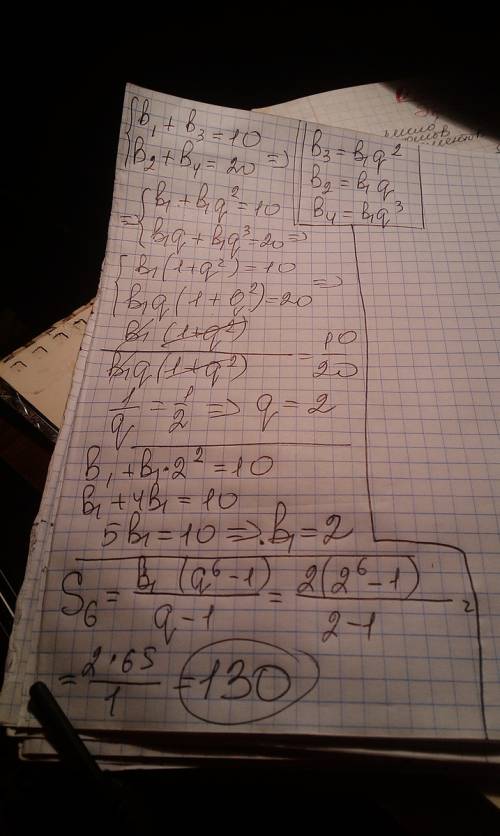 b₁ + b₃ = 10
b₂ + b₄ = 20 =>
b₃ = b₁q²
b₂ = b₁q
b₄ = b₁q³
=> b₁ + b₁q² = 10
b₁q + b₁q³ = 20 =>
b₁(1+q²) = 10 =>
b₁q(1+q²) = 20
b₁(1+q²) / b₁q(1+q²) = 10/20
1/q = 1/2 => q = 2
b₁ + b₁·2² = 10
b₁ + 4b₁ = 10
5b₁ = 10 => b₁ = 2
S₆ = b₁(q⁶-1) / q-1 = 2(2⁶-1) / 2-1 =
= 2·65 / 1 = 130
число